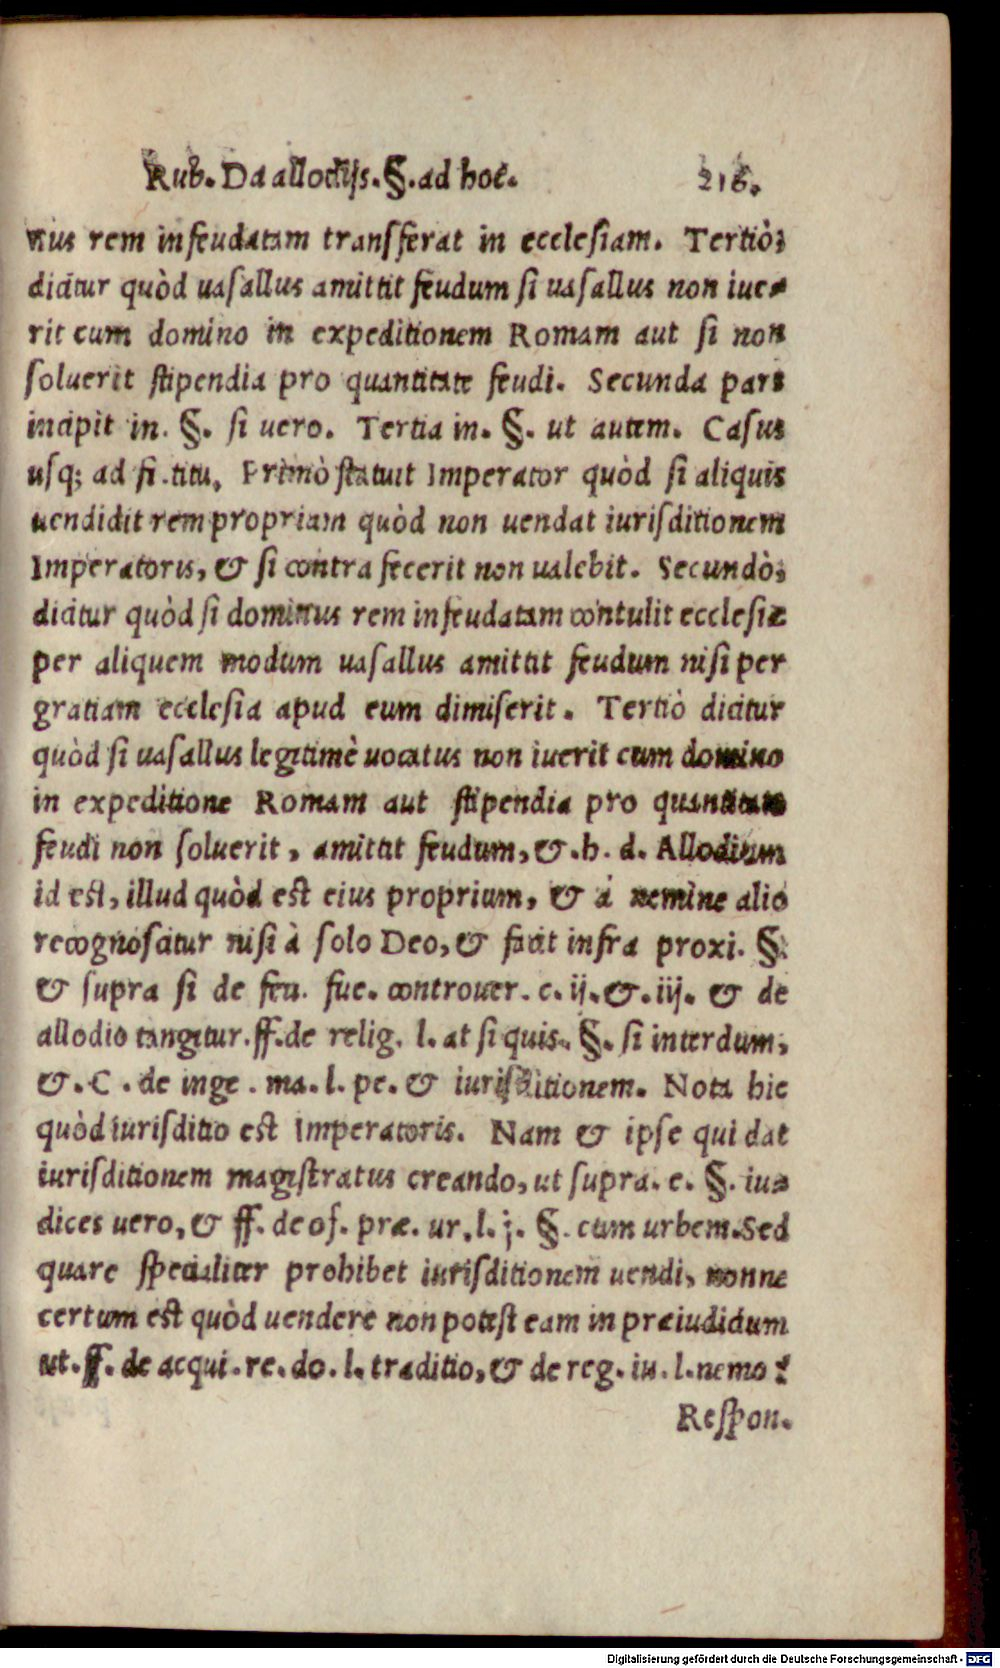 Rub. Da allodijs. §. ad hoc. 216.
nus rem infeudatam transferat in ecclesiam. Tertiò,
dicitur quòd uasallus amittit feudum si uasallus non iue-
rit cum domino in expeditionem Romam aut si non
soluerit stipendia pro quantitate feudi. Secunda pars
incipit in. §. si uero. Tertia in. §. ut autem. Casus
usq; ad fi. titu. Primò statuit Imperator quòd si aliquis
uendidit rem propriam quòd non uendat iurisditionem
Imperatoris, & si contra fecerit non ualebit. Secundò,
dicitur quòd si dominus rem infeudatam contulit ecclesiæ
per aliquem modum uasallus amittit feudum nisi per
gratiam ecclesia apud eum dimiserit. Tertiò dicitur
quòd si uasallus legitimè uocatus non iuerit cum domino
in expeditione Romam aut stipendia pro quantitate
feudi non soluerit, amittit feudum, &. h. d. Allodium
id est, illud quòd est eius proprium, & à nemine alio
recognoscitur nisi à solo Deo, & facit infra proxi. §.
& supra si de feu. fue. controuer. c. ij. &. iij. & de
allodio tangitur. ff. de relig. l. at si quis. §. si interdum,
&. C. de inge. ma. l. pe. & iurisditionem. Nota hic
quòd iurisditio est Imperatoris. Nam & ipse qui dat
iurisditionem magistratus creando, ut supra. e. §. iu-
dices uero, & ff. de of. præ. ur. l. j. §. cum urbem. Sed
quare specialiter prohibet iurisditionem uendi, nonne
certum est quòd uendere non potest eam in præiudicium
ut. ff. de acqui. re. do. l. traditio, & de reg. iu. l. nemo?
Respon.
Digitalisierung gefördert durch die Deutsche Forschungsgemeinschaft - DFG